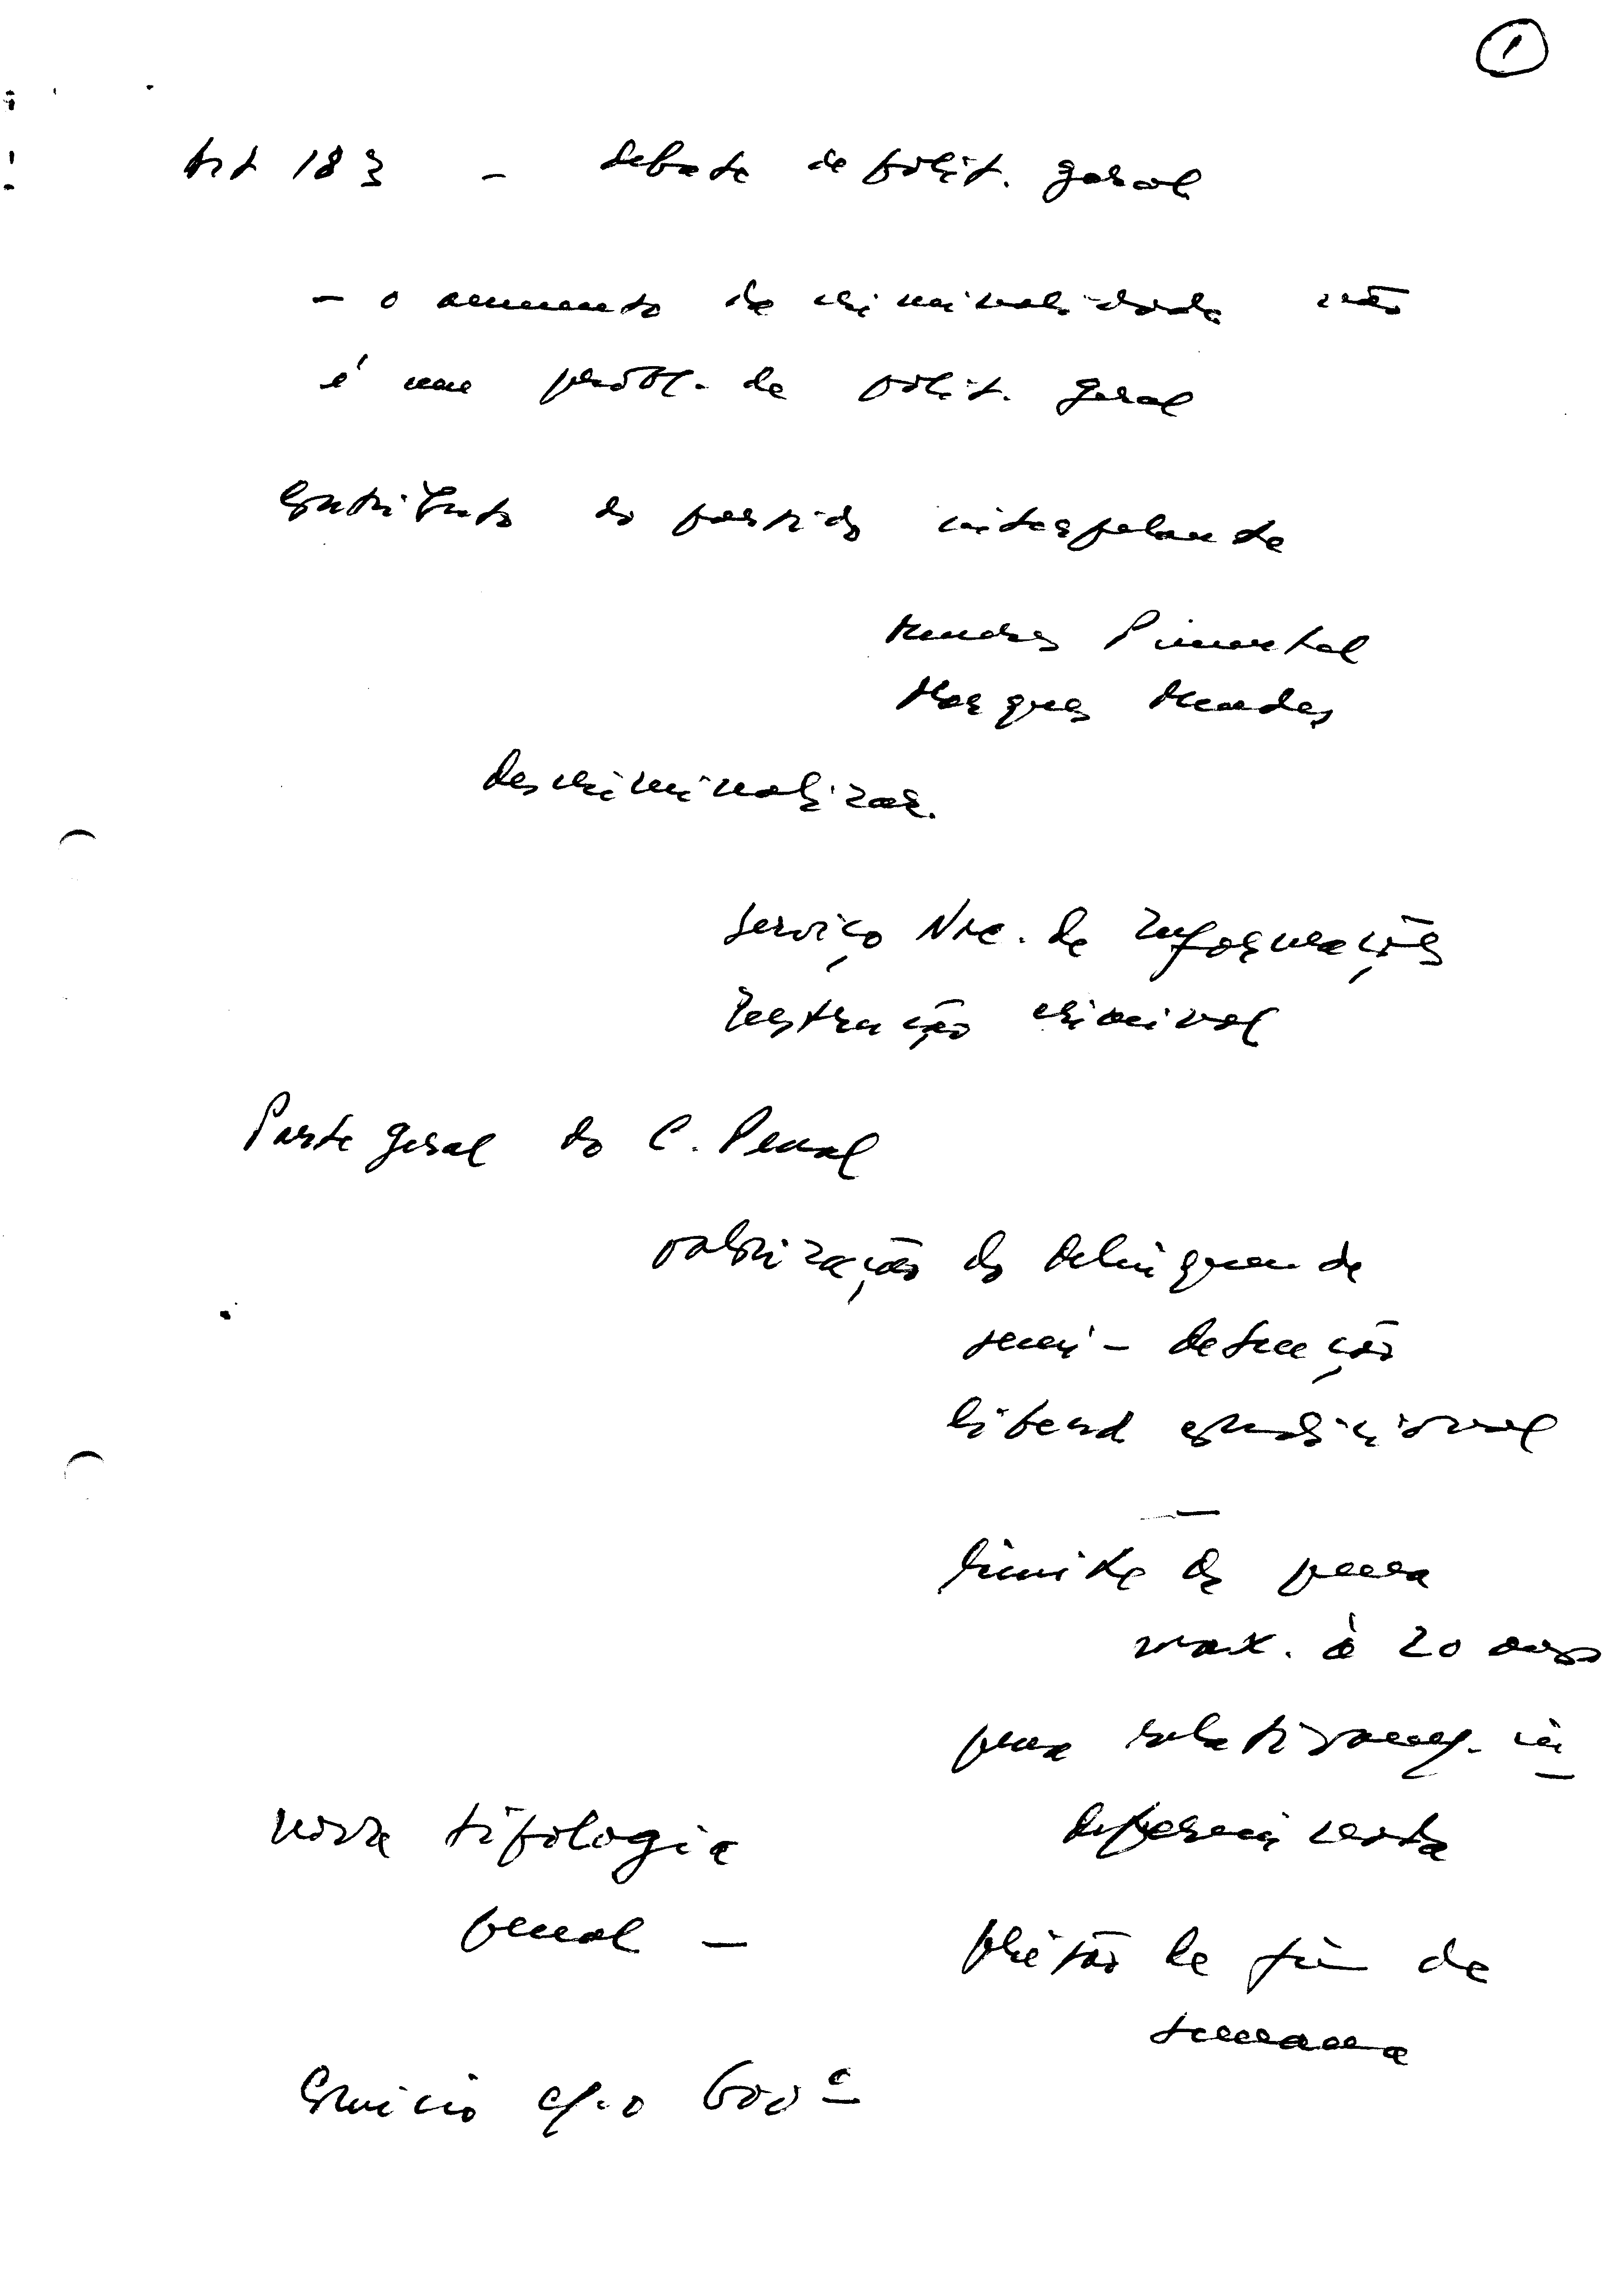 1
Art 183 - debate de polit. geral
- o aumento da criminalidade não
é um probl. de polit. geral
contributo do partido interpelante
Mendes Pimentel
Marques Mendes
descriminalizar.
Serviço Nac. de Informações
Instrução criminal
Parte geral do C. Penal
valorização do delinquente
semi-detenção
liberd condicional
limite da pena
max. a 20 anos
pena relativam. in
determinada
nova tipologia
penal -
prisão de fim de
semana